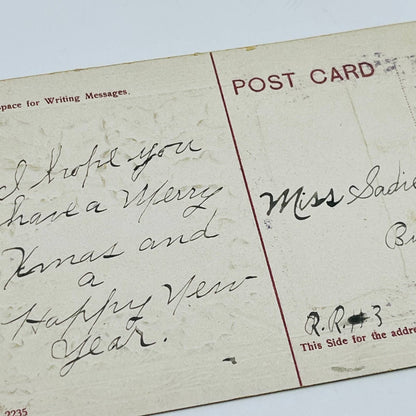 Space for Writing Messages.
POST CARD
I hope you
have a Merry
Xmas and
a
Happy New
Year.
Miss Sadie
R.R.#3
This Side for the addre
2235